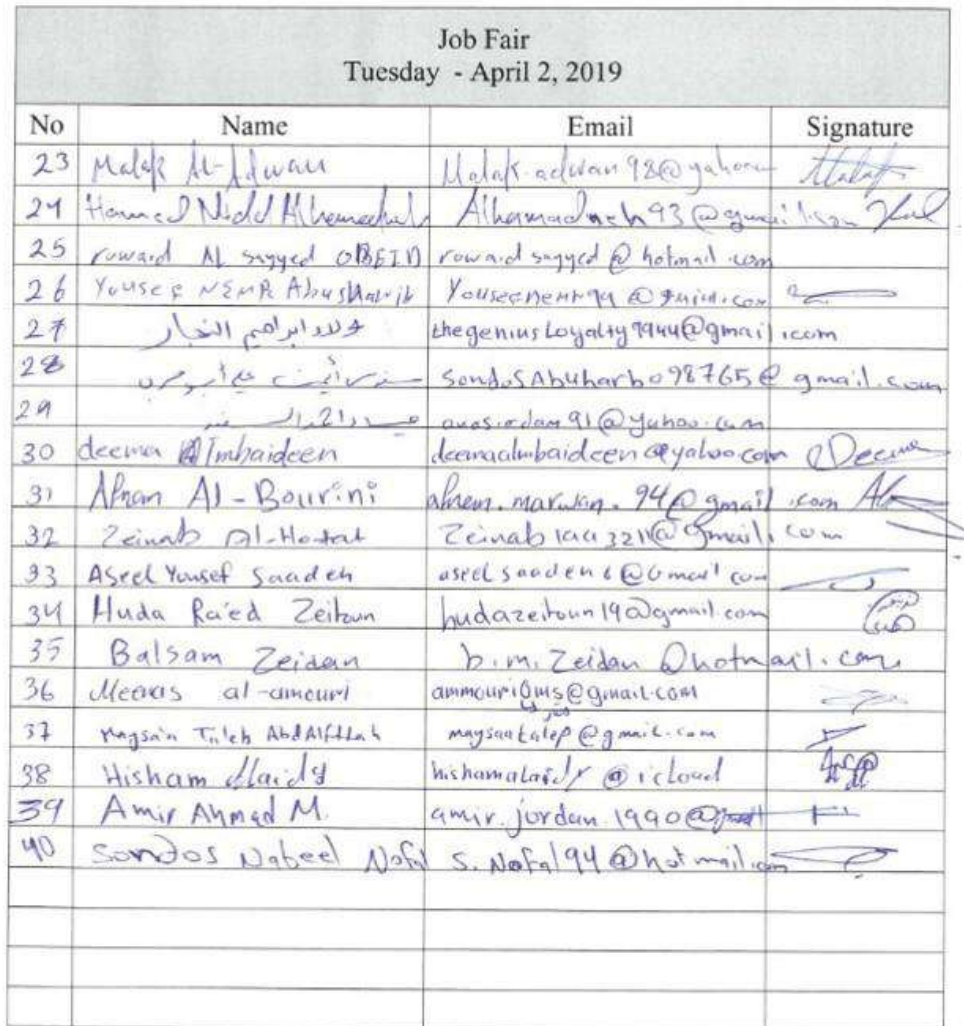 Job Fair
Tuesday - April 2, 2019
No Name Email Signature
23 Malak Al-Adwan Malak.adwan98@yahoo
24 Hamed Alhamadneh93@gmail.com
25 rowaid AL sayyed OBEID rowaid sayyed @ hotmail.com
26 Yousef NEMR Yousefnemr94 @ gmail.com
27 ولاء ابراهيم النجار thegeniusLoyalty9944@gmail.com
28 سندس SondosAbuharbo98765@gmail.com
29 @yahoo.com
30 deema Almbaideen deemaalmbaideen@yahoo.com Deema
31 Afnan Al-Bourini afnen.marwan.94@gmail.com
32 Zeinab Zeinab 3211@gmail.com
33 Aseel Yousef Saadeh aseelsaadeh6@Gmail com
34 Huda Ra'ed Zeitoun hudazeitoun19@gmail.com
35 Balsam Zeidan b.m.Zeidan @hotmail.com
36 Meeras al-amouri @gmail.com
37 Maysa'a Taleb AbdAlfttah maysaatalep@gmail.com
38 Hisham Alaidy hishamalaidy @icloud
39 Amir Ahmad M. amir.jordan.1990@
40 Sondos Nabeel Nofal S.Nofal94@hotmail.com